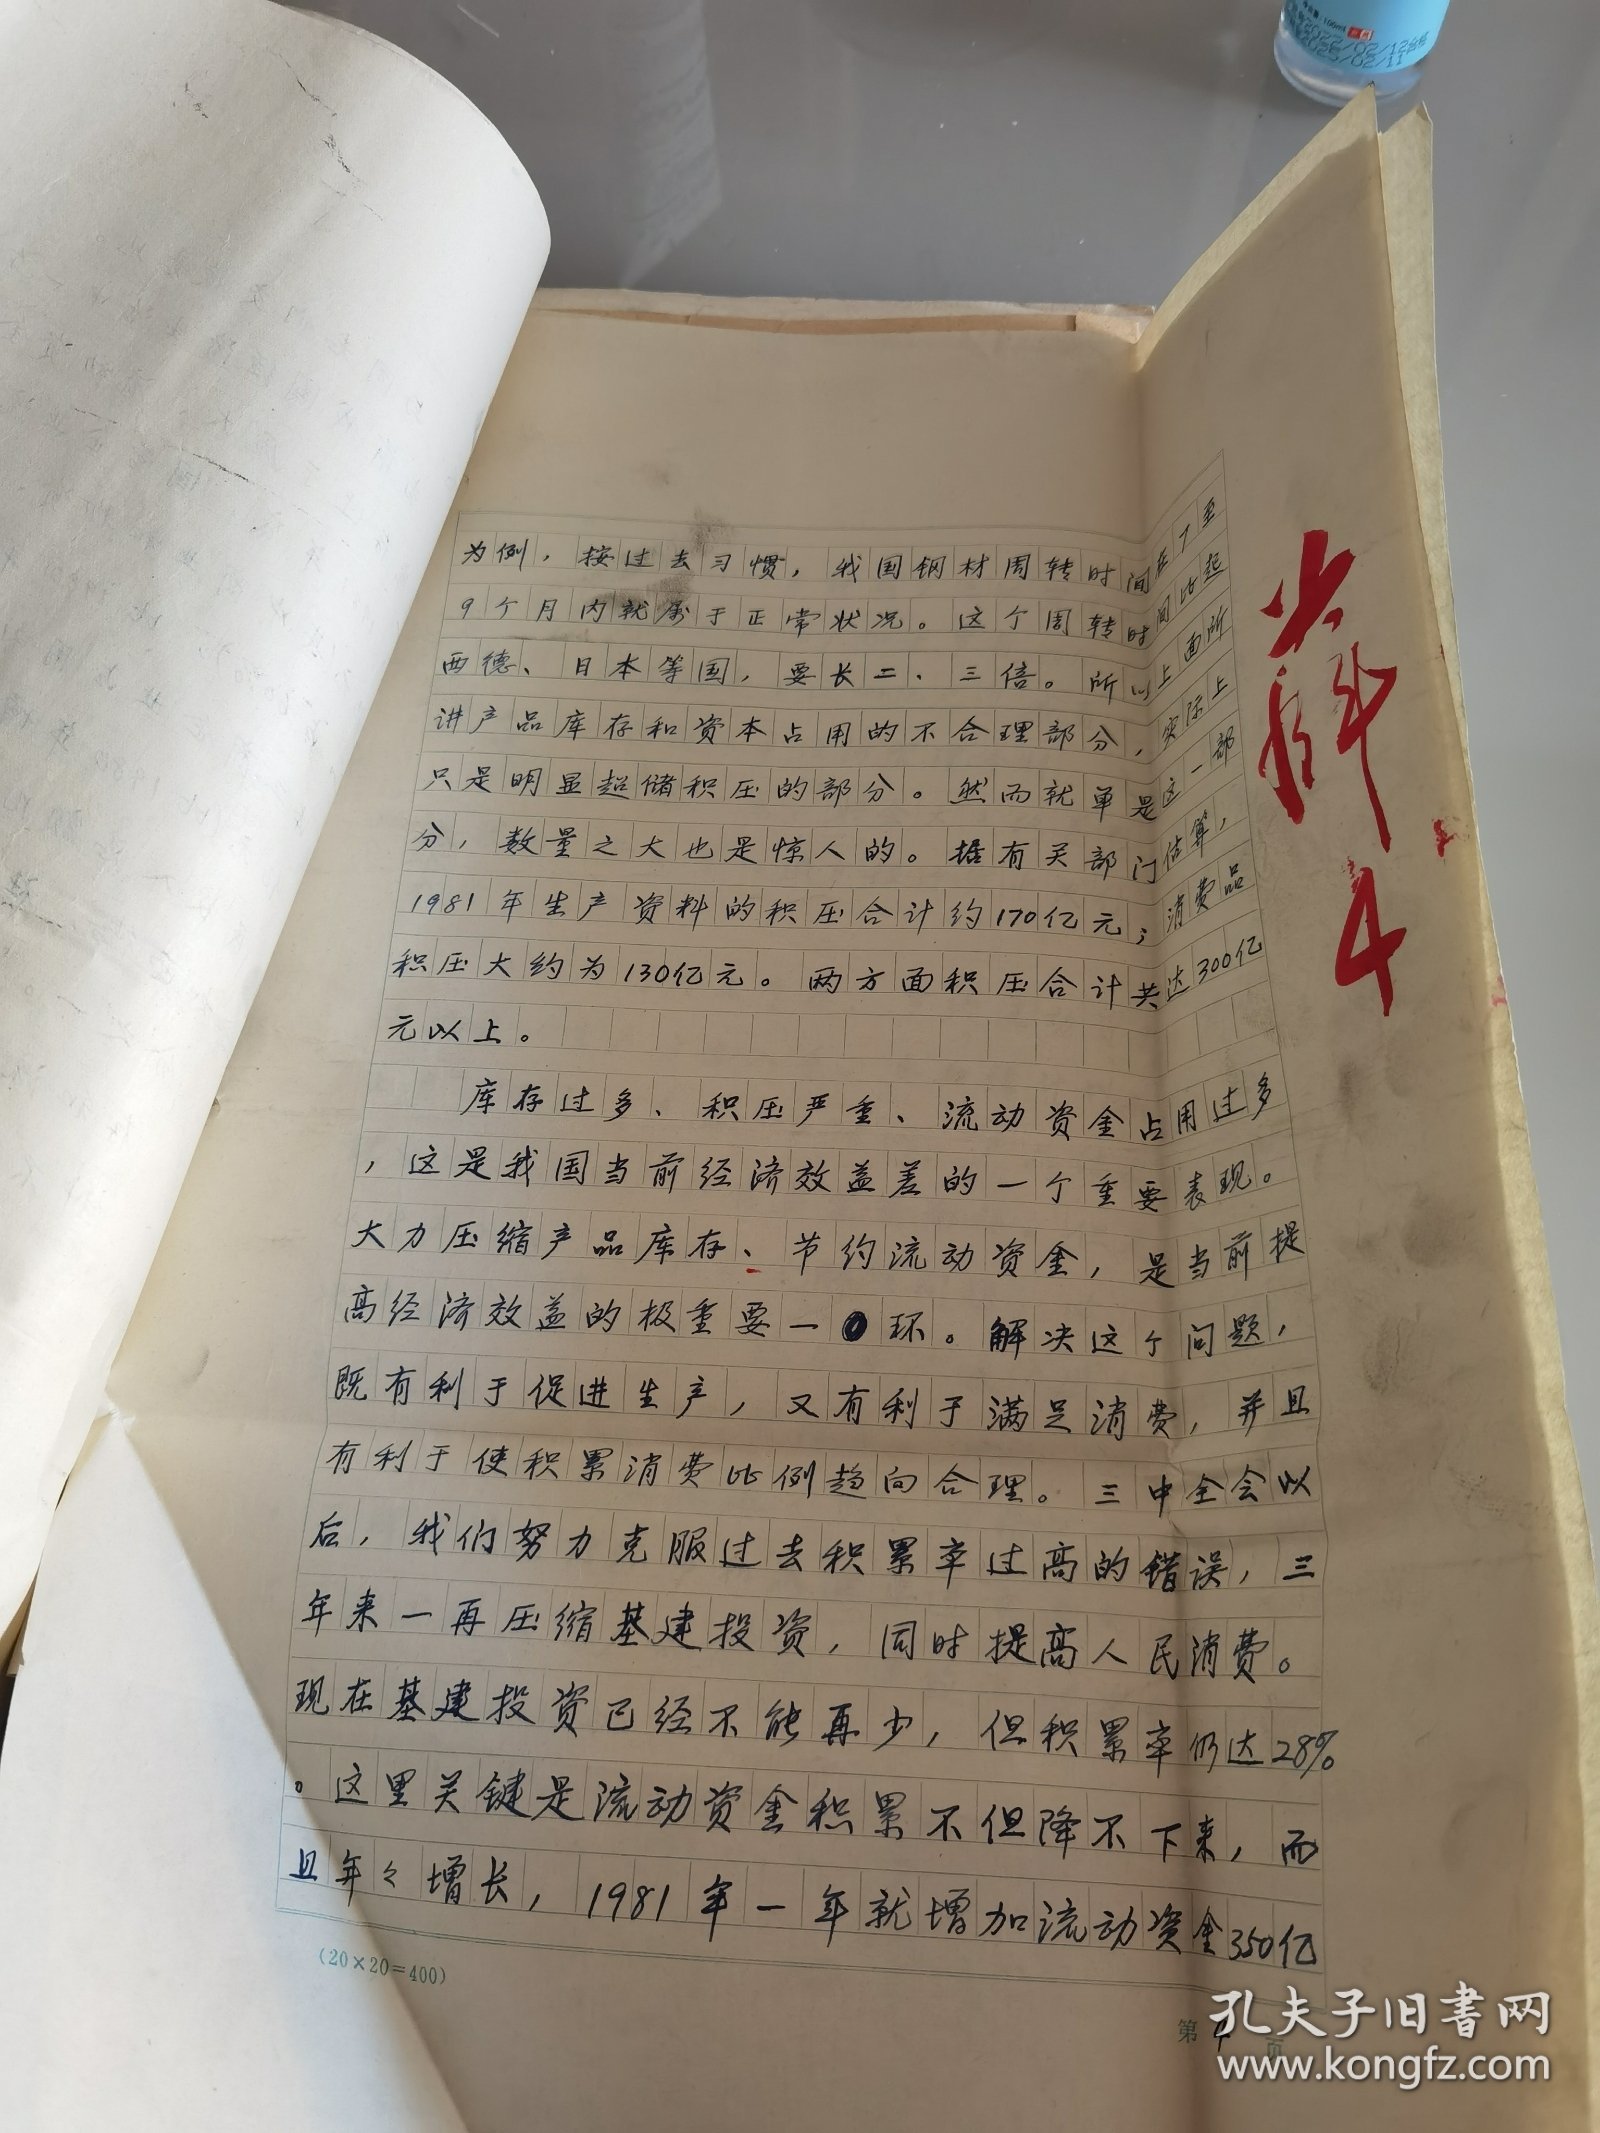 为例，按过去习惯，我国钢材周转时间在7至
9个月内就属于正常状况。这个周转时间比起
西德、日本等国，要长二、三倍。所以上面所
讲产品库存和资本占用的不合理部分，实际上
只是明显超储积压的部分。然而就单是这一部
分，数量之大也是惊人的。据有关部门估算，
1981年生产资料的积压合计约170亿元；消费品
积压大约为130亿元。两方面积压合计共达300亿
元以上。
库存过多、积压严重、流动资金占用过多
，这是我国当前经济效益差的一个重要表现。
大力压缩产品库存、节约流动资金，是当前提
高经济效益的极重要一环。解决这个问题，
既有利于促进生产，又有利于满足消费，并且
有利于使积累消费比例趋向合理。三中全会以
后，我们努力克服过去积累率过高的错误，三
年来一再压缩基建投资，同时提高人民消费。
现在基建投资已经不能再少，但积累率仍达28%
。这里关键是流动资金积累不但降不下来，而
且年々增长，1981年一年就增加流动资金350亿
(20×20=400)
第4页
4
孔夫子旧书网
www.kongfz.com